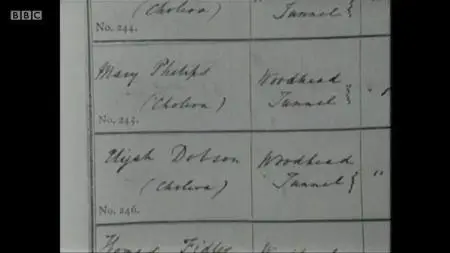 BBC
(Cholera)
Tunnel
No. 244.
Mary Phelips
Woodhead
(Cholera)
Tunnel
No. 245.
Elijah Dobson
Woodhead
(Cholera)
Tunnel
"
No. 246.